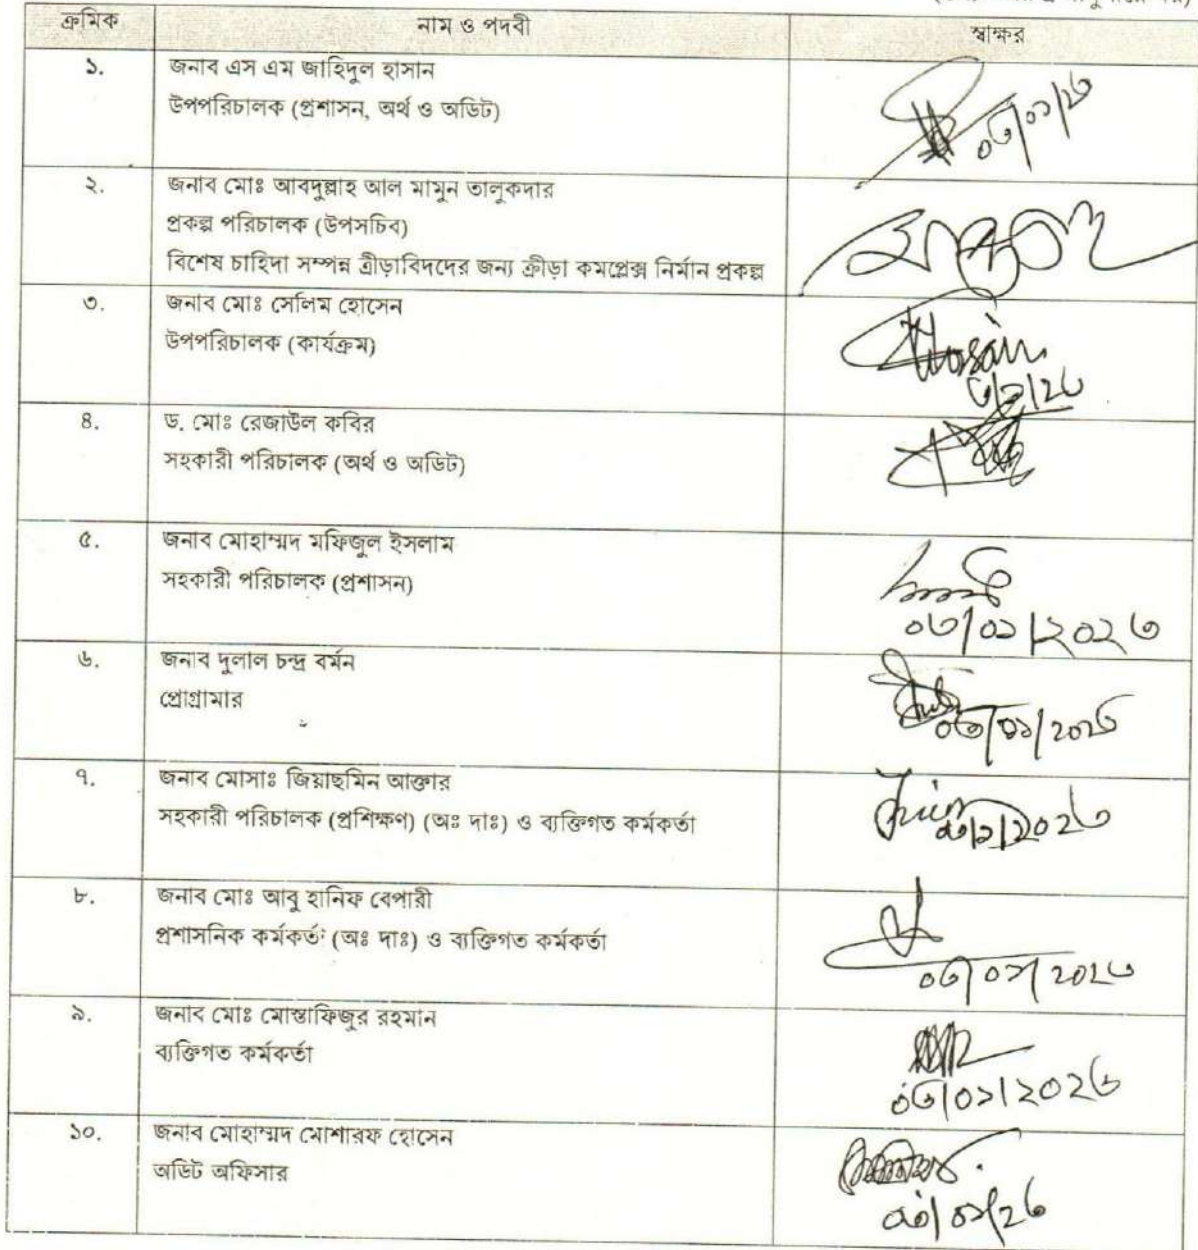 ক্রমিক নাম ও পদবী স্বাক্ষর
১. জনাব এস এম জাহিদুল হাসান
উপপরিচালক (প্রশাসন, অর্থ ও অডিট)
০৬/০১/২৬
২. জনাব মোঃ আবদুল্লাহ আল মামুন তালুকদার
প্রকল্প পরিচালক (উপসচিব)
বিশেষ চাহিদা সম্পন্ন ক্রীড়াবিদদের জন্য ক্রীড়া কমপ্লেক্স নির্মান প্রকল্প
৩. জনাব মোঃ সেলিম হোসেন
উপপরিচালক (কার্যক্রম)
Hosain
৪. ড. মোঃ রেজাউল কবির
সহকারী পরিচালক (অর্থ ও অডিট)
৫. জনাব মোহাম্মদ মফিজুল ইসলাম
সহকারী পরিচালক (প্রশাসন)
০৬/০১/২০২৬
৬. জনাব দুলাল চন্দ্র বর্মন
প্রোগ্রামার
০৬/০১/২০২৬
৭. জনাব মোসাঃ জিয়াছমিন আক্তার
সহকারী পরিচালক (প্রশিক্ষণ) (অঃ দাঃ) ও ব্যক্তিগত কর্মকর্তা
৮. জনাব মোঃ আবু হানিফ বেপারী
প্রশাসনিক কর্মকর্তা (অঃ দাঃ) ও ব্যক্তিগত কর্মকর্তা
০৬/০১/২০২৬
৯. জনাব মোঃ মোস্তাফিজুর রহমান
ব্যক্তিগত কর্মকর্তা
০৬/০১/২০২৬
১০. জনাব মোহাম্মদ মোশারফ হোসেন
অডিট অফিসার
০৬/০১/২৬